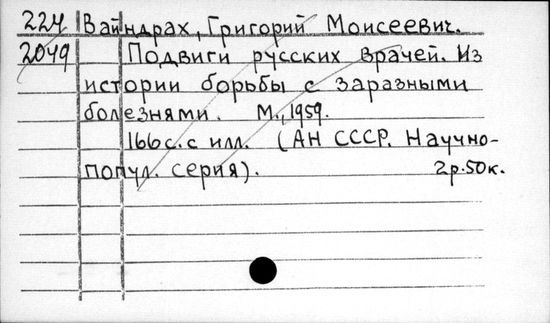 224 Вайндрах, Григорий Моисеевич.
2049 Подвиги русских врачей. Из
истории борьбы с заразными
болезнями. М., 1959.
166 с. с илл. (АН СССР. Научно-
попул. серия). 2р.50к.